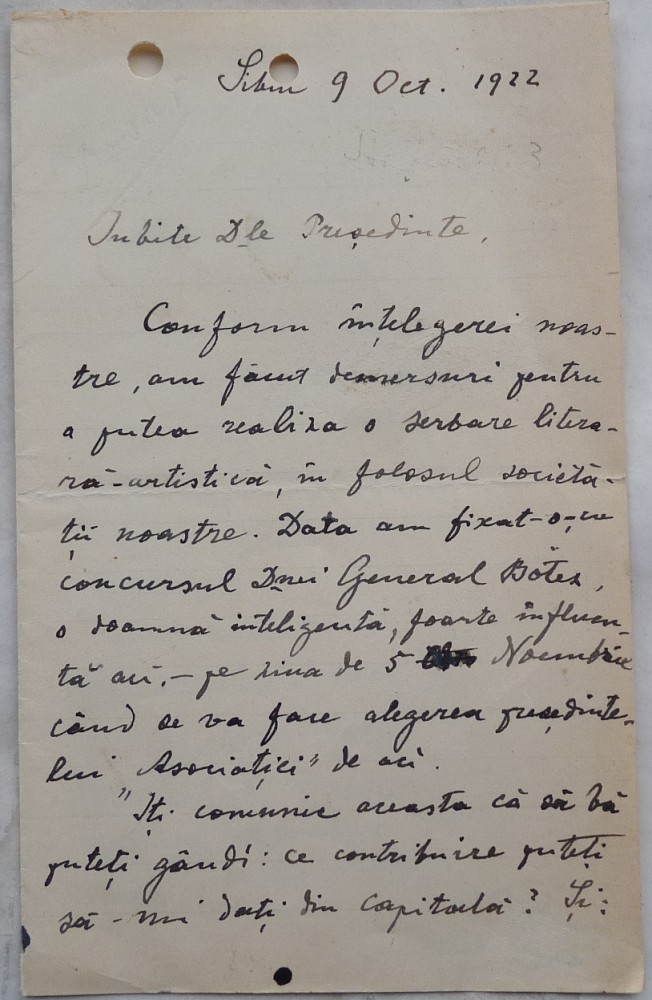 Sibiu 9 Oct. 1922
Iubite Dle Președinte,
Conform înțelegerei noas-
tre, am făcut demersuri pentru
a putea realiza o serbare litera-
ră-artistică, în folosul societă-
ții noastre. Data am fixat-o, cu
concursul Dnei General Botez,
o doamnă inteligentă, foarte influen-
tă aci, - pe ziua de 5 Noembrie
când se va face alegerea președinte-
lui "Asociației" de aci.
Iți comunic aceasta că să vă
puteți gândi: ce contribuire puteți
să-mi dați din capitală? Și: